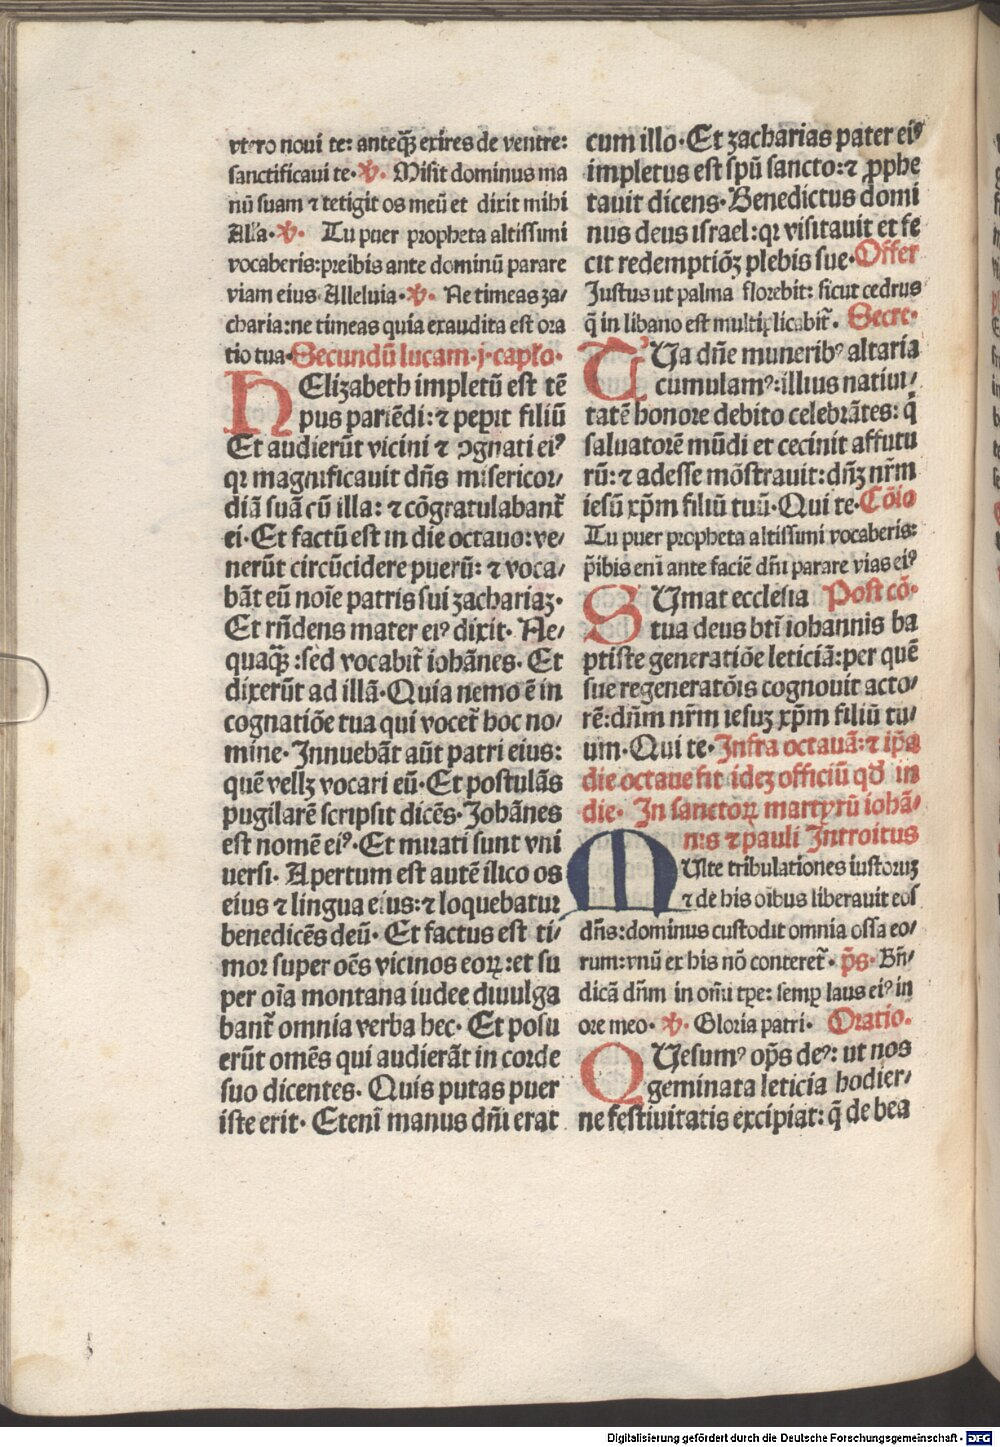 vtero noui te: anteq̃ȝ exires de ventre:
sanctificaui te· ꝟ. Misit dominus ma
nū suam ⁊ tetigit os meū et dixit mihi
Alľa· ꝟ. Tu puer propheta altissimi
vocaberis:preibis ante dominū parare
viam eius Alleluia· ꝟ. Ne timeas za/
charia:ne timeas quia exaudita est ora
tio tua·Secundū lucam·j·capľo·
H Elizabeth impletū est tē
pus pariēdi:⁊ peperit filiū
Et audierūt vicini ⁊ ꝯgnati eiꝰ
qꝛ magnificauit dñs misericor/
diā suā cū illa: ⁊ cōgratulabant̃
ei·Et factū est in die octauo:ve/
nerūt circūcidere puerū: ⁊ voca/
bāt eū noīe patris sui zachariaȝ·
Et rñdens mater eiꝰ dixit· Ne/
quaq̃ȝ :sed vocabit̃ iohānes· Et
dixerūt ad illā·Quia nemo ē in
cognatiōe tua qui vocet̃ hoc no/
mine· Innuebāt aūt patri eius:
quē vellȝ vocari eū·Et postulās
pugilarē scripsit dicēs·Johānes
est nomē eiꝰ·Et mirati sunt vni
uersi· Apertum est autē ilico os
eius ⁊ lingua eius:⁊ loquebatur
benedicēs deū· Et factus est ti/
mor super oēs vicinos eoꝝ:et su
per oīa montana iudee diuulga
bant̃ omnia verba hec· Et posu
erūt omēs qui audierāt in corde
suo dicentes· Quis putas puer
iste erit· Etenī manus dñi erat
cum illo·Et zacharias pater eiꝰ
impletus est spū sancto:⁊ ꝓphe
tauit dicens·Benedictus domi
nus deus israel:qꝛ visitauit et fe
cit redemptiōȝ plebis sue·Offer
Justus ut palma florebit: sicut cedrus
q̄ in libano est multiplicabit̃. Secre·
TUa dñe muneribꝰ altaria
cumulamꝰ:illius natiui/
tatē honore debito celebrātes: q̄
saluatorē mūdi et cecinit affutu
rū:⁊ adesse mōstrauit:dñȝ nr̃m
iesū xp̄m filiū tuū·Qui te·Cōio
Tu puer propheta altissimi vocaberis:
p̄ibis enī ante faciē dñi parare vias eiꝰ
SUmat ecclesia Post cō·
tua deus bt̄i iohannis ba
ptiste generatiōe leticiā:per quē
sue regeneratōis cognouit acto/
rē:dñm nr̃m iesuȝ xp̄m filiū tu/
um·Qui te·Infra octauā:⁊ ip̄a
die octaue fit ideȝ officiū qđ in
die· In sanctoꝝ martyrū iohā/
nis ⁊ pauli Introitus
MUlte tribulationes iustoruȝ
⁊ de his oībus liberauit eos
dñs:dominus custodit omnia ossa eo/
rum:vnū ex his nō conteret̃· p̄s· Bñ/
dicā dñm in om̄i tp̄e: semꝑ laus eiꝰ in
ore meo· ꝟ. Gloria patri· Oratio.
QUesumꝰ op̄s deꝰ: ut nos
geminata leticia hodier/
ne festiuitatis excipiat: q̄ de bea
Digitalisierung gefördert durch die Deutsche Forschungsgemeinschaft - DFG